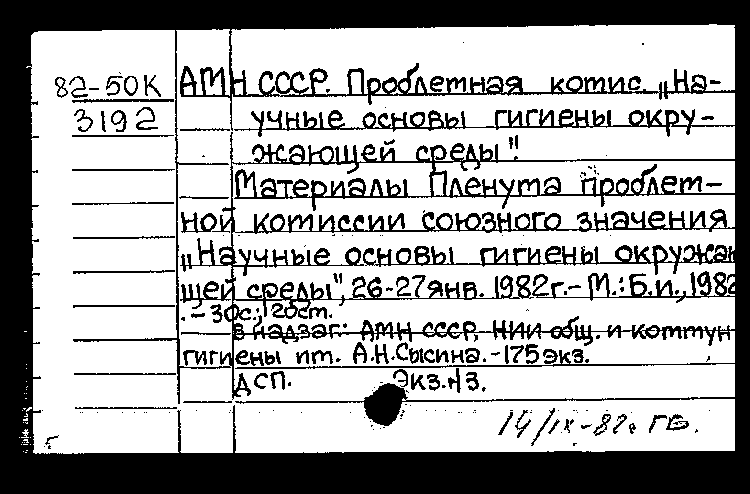 82-50К
3192
АМН СССР. Проблемная комис. „На-
учные основы гигиены окру-
жающей среды".
Материалы Пленума проблем-
ной комиссии союзного значения
„Научные основы гигиены окружаю
щей среды", 26-27 янв. 1982г.- М.: Б.и., 1982
.-30с.; 20см.
В надзаг.: АМН СССР, НИИ общ. и коммун
гигиены им. А.Н.Сысина.-175экз.
ДСП. Экз.№3.
14/IX-82г ГБ.